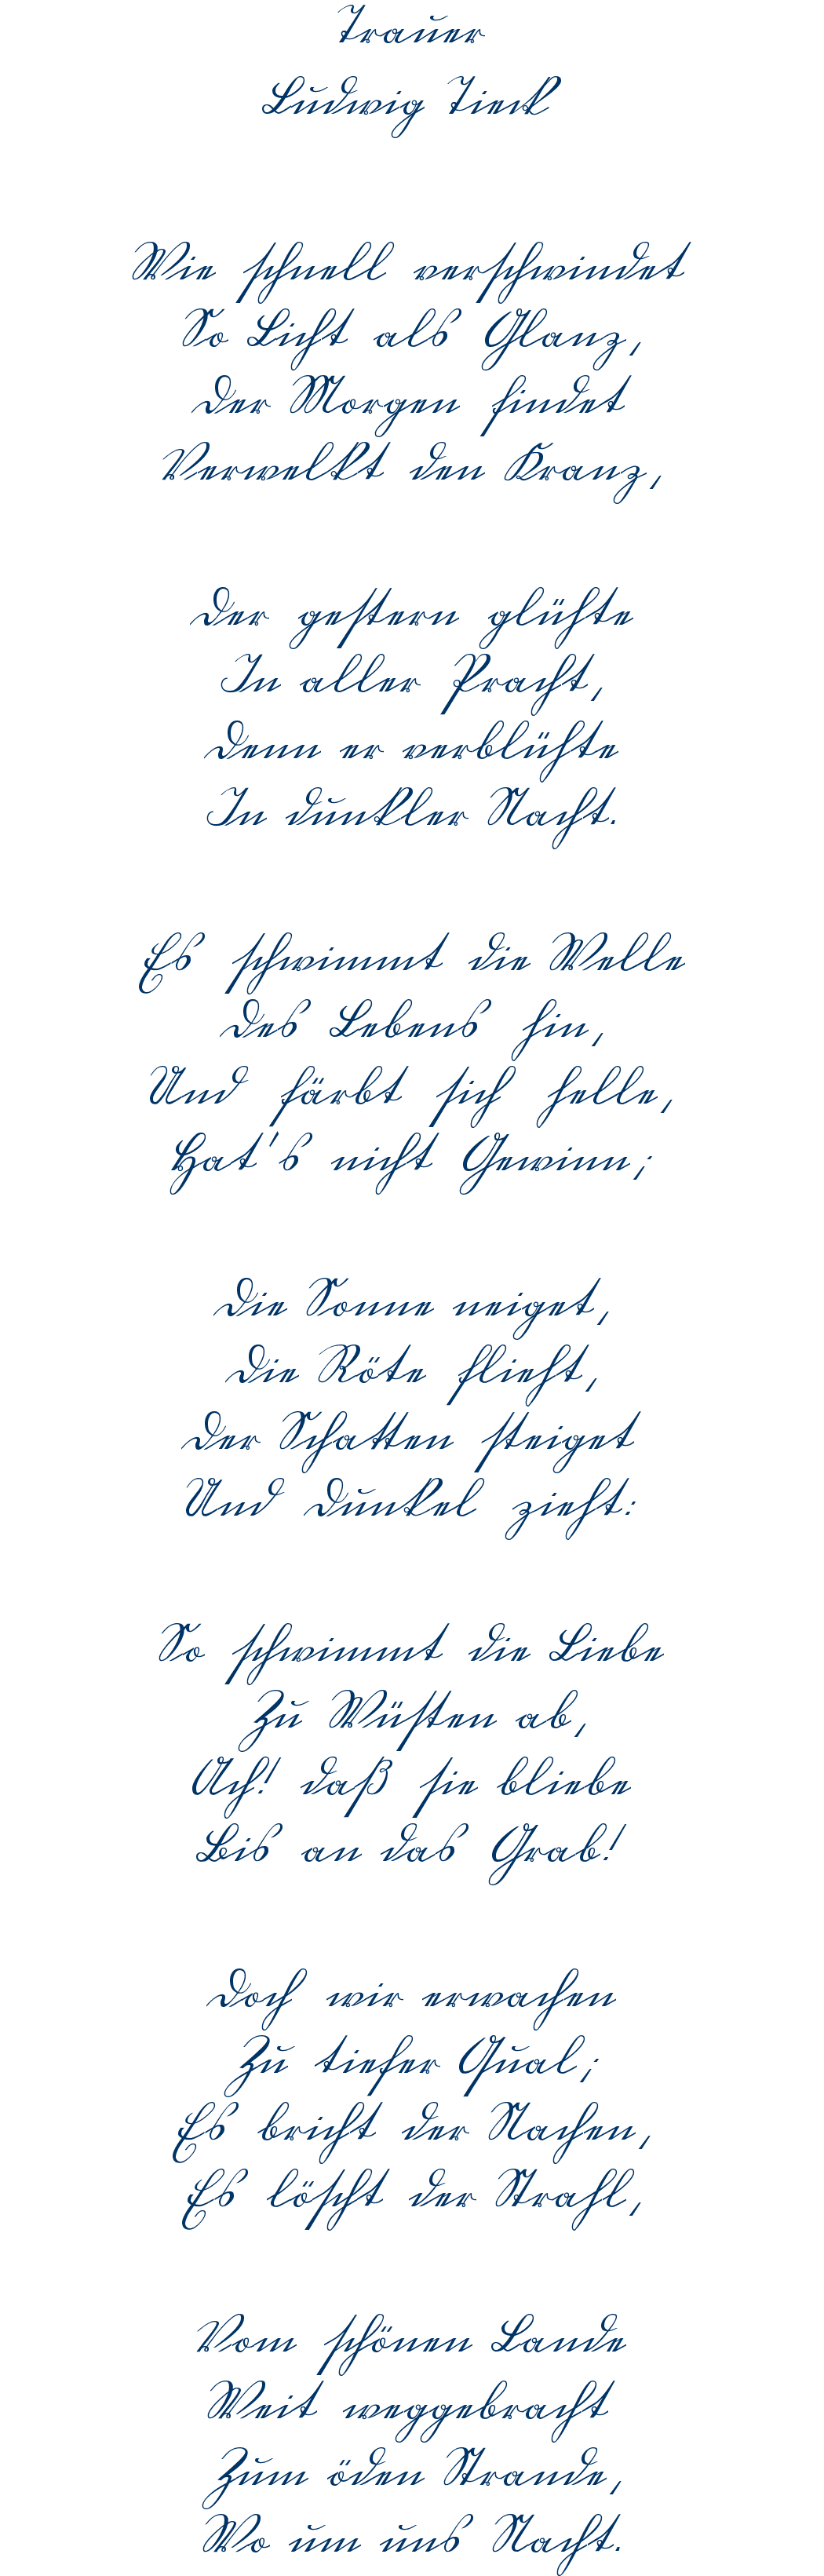 Trauer
Ludwig Tieck
Wie schnell verschwindet
So Licht als Glanz,
Der Morgen findet
Verwelkt den Kranz,
Der gestern glühte
In aller Pracht,
Denn er verblühte
In dunkler Nacht.
Es schwimmt die Welle
Des Lebens hin,
Und färbt sich helle,
Hat's nicht Gewinn;
Die Sonne neiget,
Die Röte flieht,
Der Schatten steiget
Und Dunkel zieht:
So schwimmt die Liebe
Zu Wüsten ab,
Ach! daß sie bliebe
Bis an das Grab!
Doch wir erwachen
Zu tiefer Qual;
Es bricht der Nachen,
Es löscht der Strahl,
Vom schönen Lande
Weit weggebracht
Zum öden Strande,
Wo um uns Nacht.